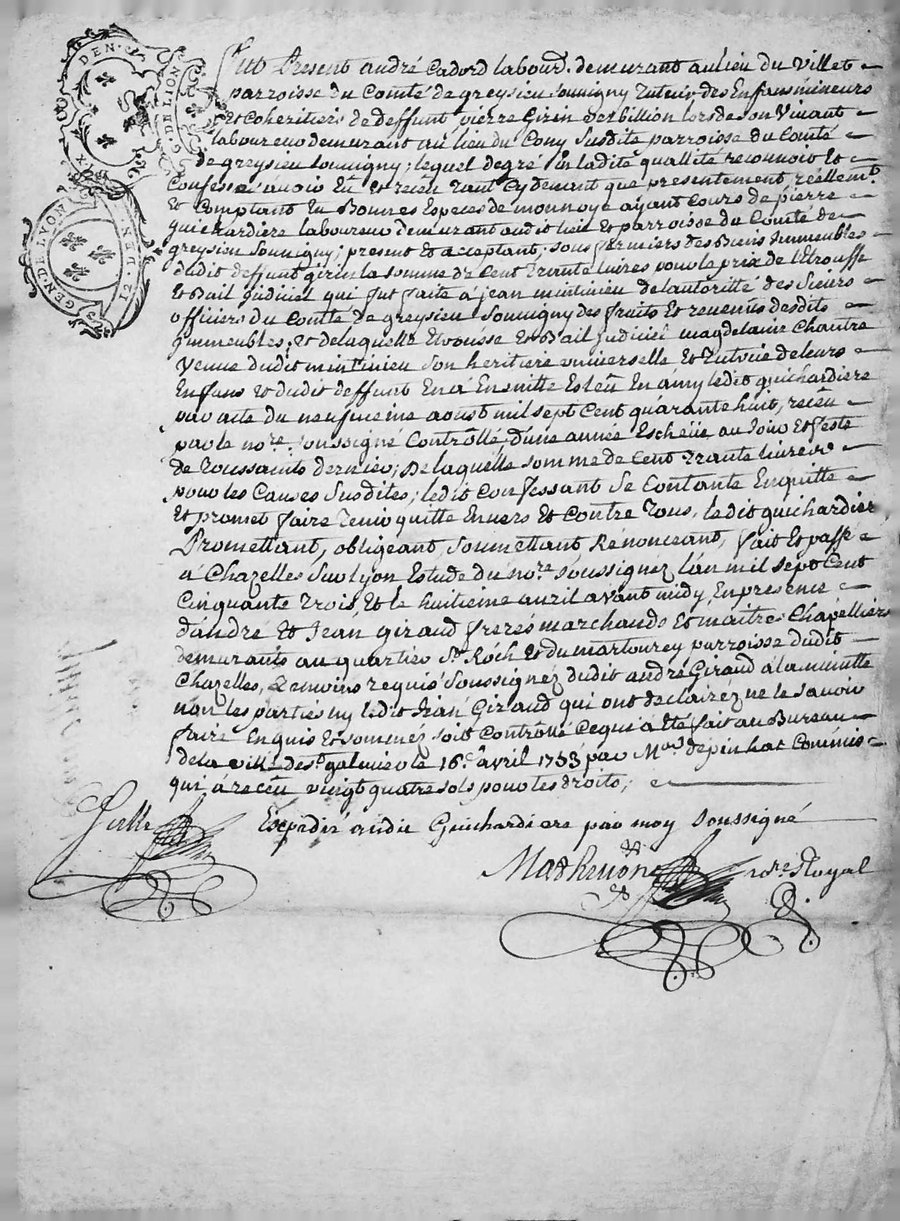 DEN.
G.DE LION
GEN.DE LYON
DEN. 12
Fut Present andré Cadord labour. demeurant au lieu du Villet
parroisse du Comté de greysieu Souvigny Tuteur des Enfans mineurs
Et Coheritiers de deffunt pierre Girin Derbillion lors de son Vivant
laboureur demeurant au lieu du Cony Susditte parroisse du Comté
de greysieu Souvigny; lequel de gré En ladite quallité reconnoit Et
Confesse avoir Eu Et receu tant Cy devant que presentement réellemt.
Et Comptant En Bonnes Especes de monnoye ayant Cours de pierre
guichardiere laboureur demeurant audit lieu et parroisse du Comté de
greysieu Souvigny; present et acceptant, sous fermiers des Biens Immeubles
dudit deffunt girin la somme de Cent trante livres pour le prix de l'Etrousse
Et Bail Judiciel qui fut faite à jean mintinieu de lautoritté des Sieurs
officiers du Comté de greysieu Souvigny des fruits Et revenus desdits
Immeubles, et de laquelle Etrousse Et Bail Judiciel magdelaine Chautre
Veuve dudit mintinieu Son heritiere universelle Et Tutrice de leurs
Enfans Et dudit deffunt En a Ensuitte Esleu En amy ledit guichardiere
par acte du neufvieme aoust mil sept Cent quarante huit, receu
par le nore. soussigné Controllé, d'une année Escheüe au Jour Et feste
de Toussaints dernier; De laquelle somme de Cent trante livres
pour les Causes Susdites; ledit Confessant Se Contante Enquitte
Et promet faire tenir quitte Envers Et Contre Tous, ledit guichardier,
Promettant, obligeant, Soumettant, Renonceant, fait Et passé
à Chazelles Sur lyon Estude du nore. Soussignez l'an mil sept Cent
Cinquante trois, Et le huitieme avril avant midy, En presence
d'andré Et Jean giraud freres marchands Et maitres Chapelliers
demeurants au quartier St. Roch Et du martourey parroisse dudit
Chazelles, temoins requis Soussignez dudit andré Giraud à la minutte
non les parties ny ledit Jean Giraud qui ont declairéz ne le Savoir
faire Enquis Et Sommez soit Controllé Ce qui a Eté fait au Bureau
de la Ville de St. galmier le 16e. avril 1753 par Mr. depinhac Commis
qui a receu vingt quatre sols pour les droits;
Expedié audit Guichardiere par moy soussigné
nore. Royal